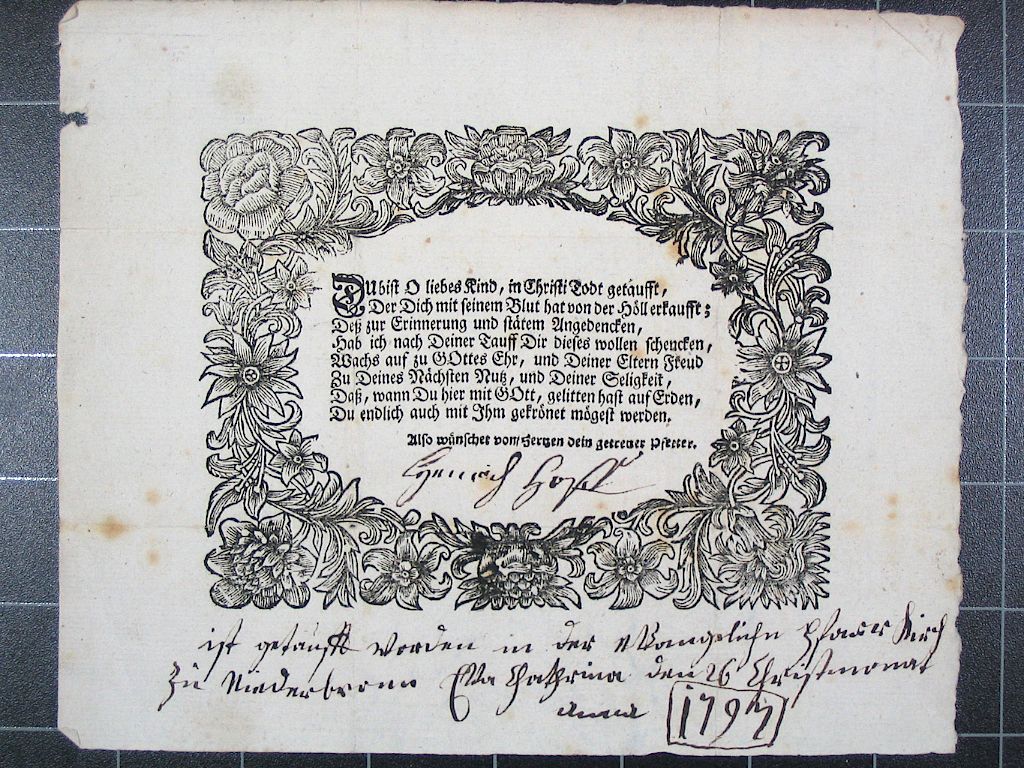 DU bist O liebes Kind, in Christi Todt getäufft,
Der Dich mit seinem Blut hat von der Höll erkaufft;
Deß zur Erinnerung und stätem Angedencken,
Hab ich nach Deiner Tauff Dir dieses wollen schencken,
Wachs auf zu GOttes Ehr, und Deiner Eltern Freud
Zu Deines Nächsten Nutz, und Deiner Seligkeit,
Daß, wann Du hier mit GOtt, gelitten hast auf Erden,
Du endlich auch mit Ihm gekrönet mögest werden.
Also wünschet von Hertzen dein getreuer Pfetter.
Henrich
ist getaufft worden in der Evangelichn pfarr Kirch
Zu Niederbronn Eva Chathrina den 26 Christmonat
anno 1797